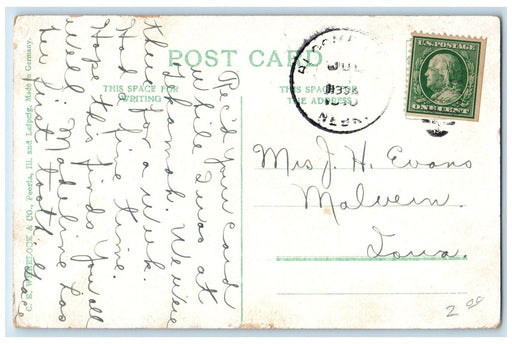 POST CARD
THIS SPACE FOR
WRITING
THIS SPACE FOR
THE ADDRESS
U.S. POSTAGE
ONE CENT
NEBR.
Rec'd your card
while I was at
We were
there for a week.
Had a fine time.
Hope this finds you all
well. Madeline has
her first tooth.
Mrs J. H. Evans
Malvern.
Iowa.
C. E. WHEELOCK & CO., Peoria, Ill. and Leipzig. Made in Germany.